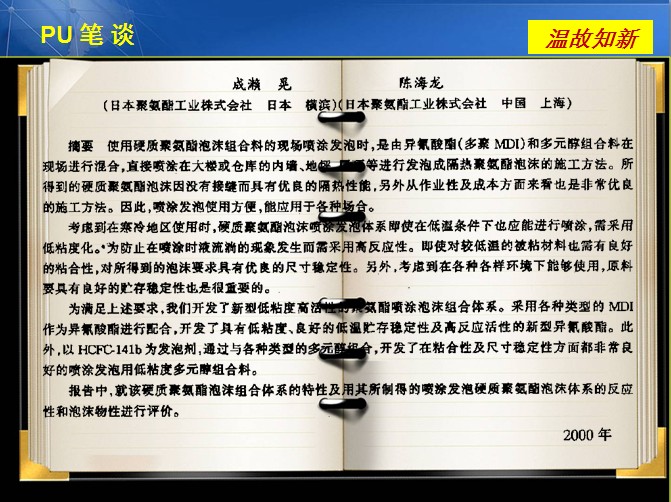 PU 笔 谈
温故知新
成濑 晃 陈海龙
(日本聚氨酯工业株式会社 日本 横滨)(日本聚氨酯工业株式会社 中国 上海)
摘要 使用硬质聚氨酯泡沫组合料的现场喷涂发泡时,是由异氰酸酯(多聚 MDI)和多元醇组合料在
现场进行混合,直接喷涂在大楼或仓库的内墙、地 等进行发泡成隔热聚氨酯泡沫的施工方法。所
得到的硬质聚氨酯泡沫因没有接缝而具有优良的隔热性能,另外从作业性及成本方面来看也是非常优良
的施工方法。因此,喷涂发泡使用方便,能应用于各种场合。
考虑到在寒冷地区使用时,硬质聚氨酯泡沫喷涂发泡体系即使在低温条件下也应能进行喷涂,需采用
低粘度化。为防止在喷涂时液流淌的现象发生而需采用高反应性。即使对较低温的被粘材料也需有良好
的粘合性,对所得到的泡沫要求具有优良的尺寸稳定性。另外,考虑到在各种各样环境下能够使用,原料
要具有良好的贮存稳定性也是很重要的。
为满足上述要求,我们开发了新型低粘度高活性的聚氨酯喷涂泡沫组合体系。采用各种类型的 MDI
作为异氰酸酯进行配合,开发了具有低粘度、良好的低温贮存稳定性及高反应活性的新型异氰酸酯。此
外,以 HCFC-141b 为发泡剂,通过与各种类型的多元醇组合,开发了在粘合性及尺寸稳定性方面都非常良
好的喷涂发泡用低粘度多元醇组合料。
报告中,就该硬质聚氨酯泡沫组合体系的特性及用其所制得的喷涂发泡硬质聚氨酯泡沫体系的反应
性和泡沫物性进行评价。
2000 年